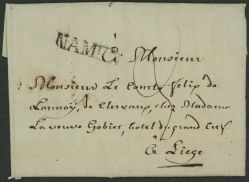 NAMUR
A Monsieur
Monsieur Le Comte felix de
Lannoÿ, de Clervaux, chez Madame
La veuve Gobiet, hotel du grand cerf
A Liege